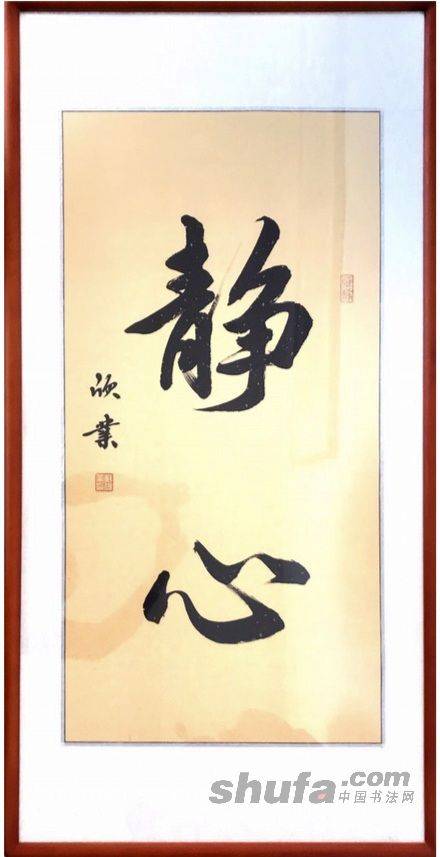 静心
欣業
shufa.com
中国书法网